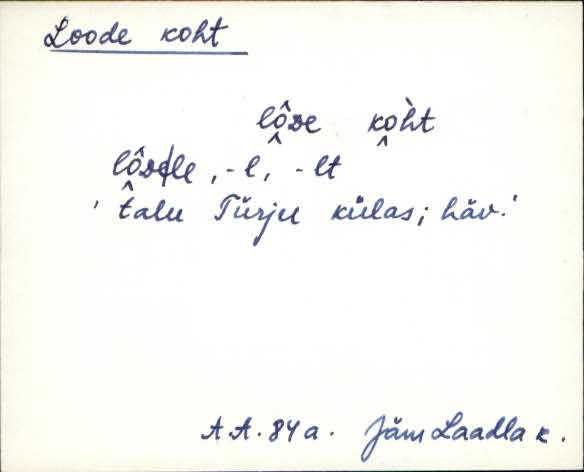 Loode koht
lô̭ᴅe ko̭ht
lô̭ᴅ|le, -l, -lt
'talu Türju külas; häv.'
A A. 84 a. Jäm Laadla k.